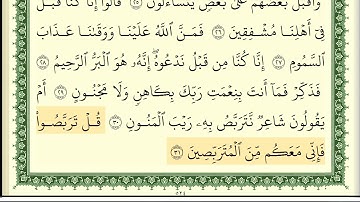 وَأَقْبَلَ بَعْضُهُمْ عَلَىٰ بَعْضٍ يَتَسَآءَلُونَ ٢٥ قَالُوٓا۟ إِنَّا كُنَّا قَبْلُ
فِىٓ أَهْلِنَا مُشْفِقِينَ ٢٦ فَمَنَّ ٱللَّهُ عَلَيْنَا وَوَقَىٰنَا عَذَابَ
ٱلسَّمُومِ ٢٧ إِنَّا كُنَّا مِن قَبْلُ نَدْعُوهُ ۖ إِنَّهُۥ هُوَ ٱلْبَرُّ ٱلرَّحِيمُ ٢٨
فَذَكِّرْ فَمَآ أَنتَ بِنِعْمَتِ رَبِّكَ بِكَاهِنٍ وَلَا مَجْنُونٍ ٢٩ أَمْ
يَقُولُونَ شَاعِرٌ نَّتَرَبَّصُ بِهِۦ رَيْبَ ٱلْمَنُونِ ٣٠ قُلْ تَرَبَّصُوا۟
فَإِنِّى مَعَكُم مِّنَ ٱلْمُتَرَبِّصِينَ ٣١
٥٢٤